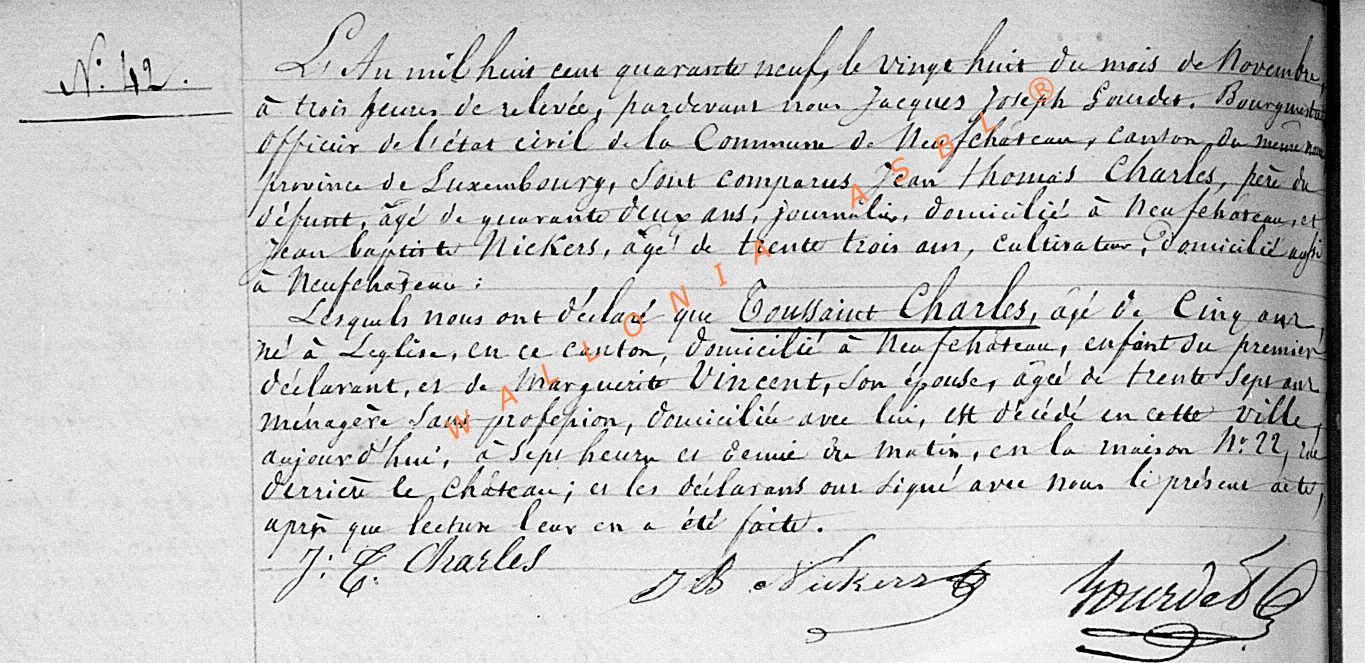 N° 42.
L'An mil huit cent quarante neuf, le vingt huit du mois de Novembre,
à trois heures de relevée, pardevant nous Jacques Joseph Gourdet, Bourgmestre
Officier de l'état civil de la Commune de Neufchâteau, canton du même nom
province de Luxembourg, sont comparus Jean Thomas Charles, père du
défunt, âgé de quarante deux ans, journalier, domicilié à Neufchâteau, et
Jean baptiste Nickers, âgé de trente trois ans, cultivateur, domicilié aussi
à Neufchâteau :
Lesquels nous ont déclaré que Toussaint Charles, âgé de Cinq ans,
né à Leglise, en ce canton, domicilié à Neufchâteau, enfant du premier
déclarant, et de Marguerite Vincent, son épouse, âgée de trente sept ans
ménagère sans profession, domiciliée avec lui, est décédé en cette ville,
aujourd'hui, à sept heures et demie du matin, en la maison N° 22, rue
derrière le château ; et les déclarans ont signé avec nous le présent acte,
après que lecture leur en a été faite.
J. T. Charles
J B Nickers
Gourdet
WALLONIA ASBL ®